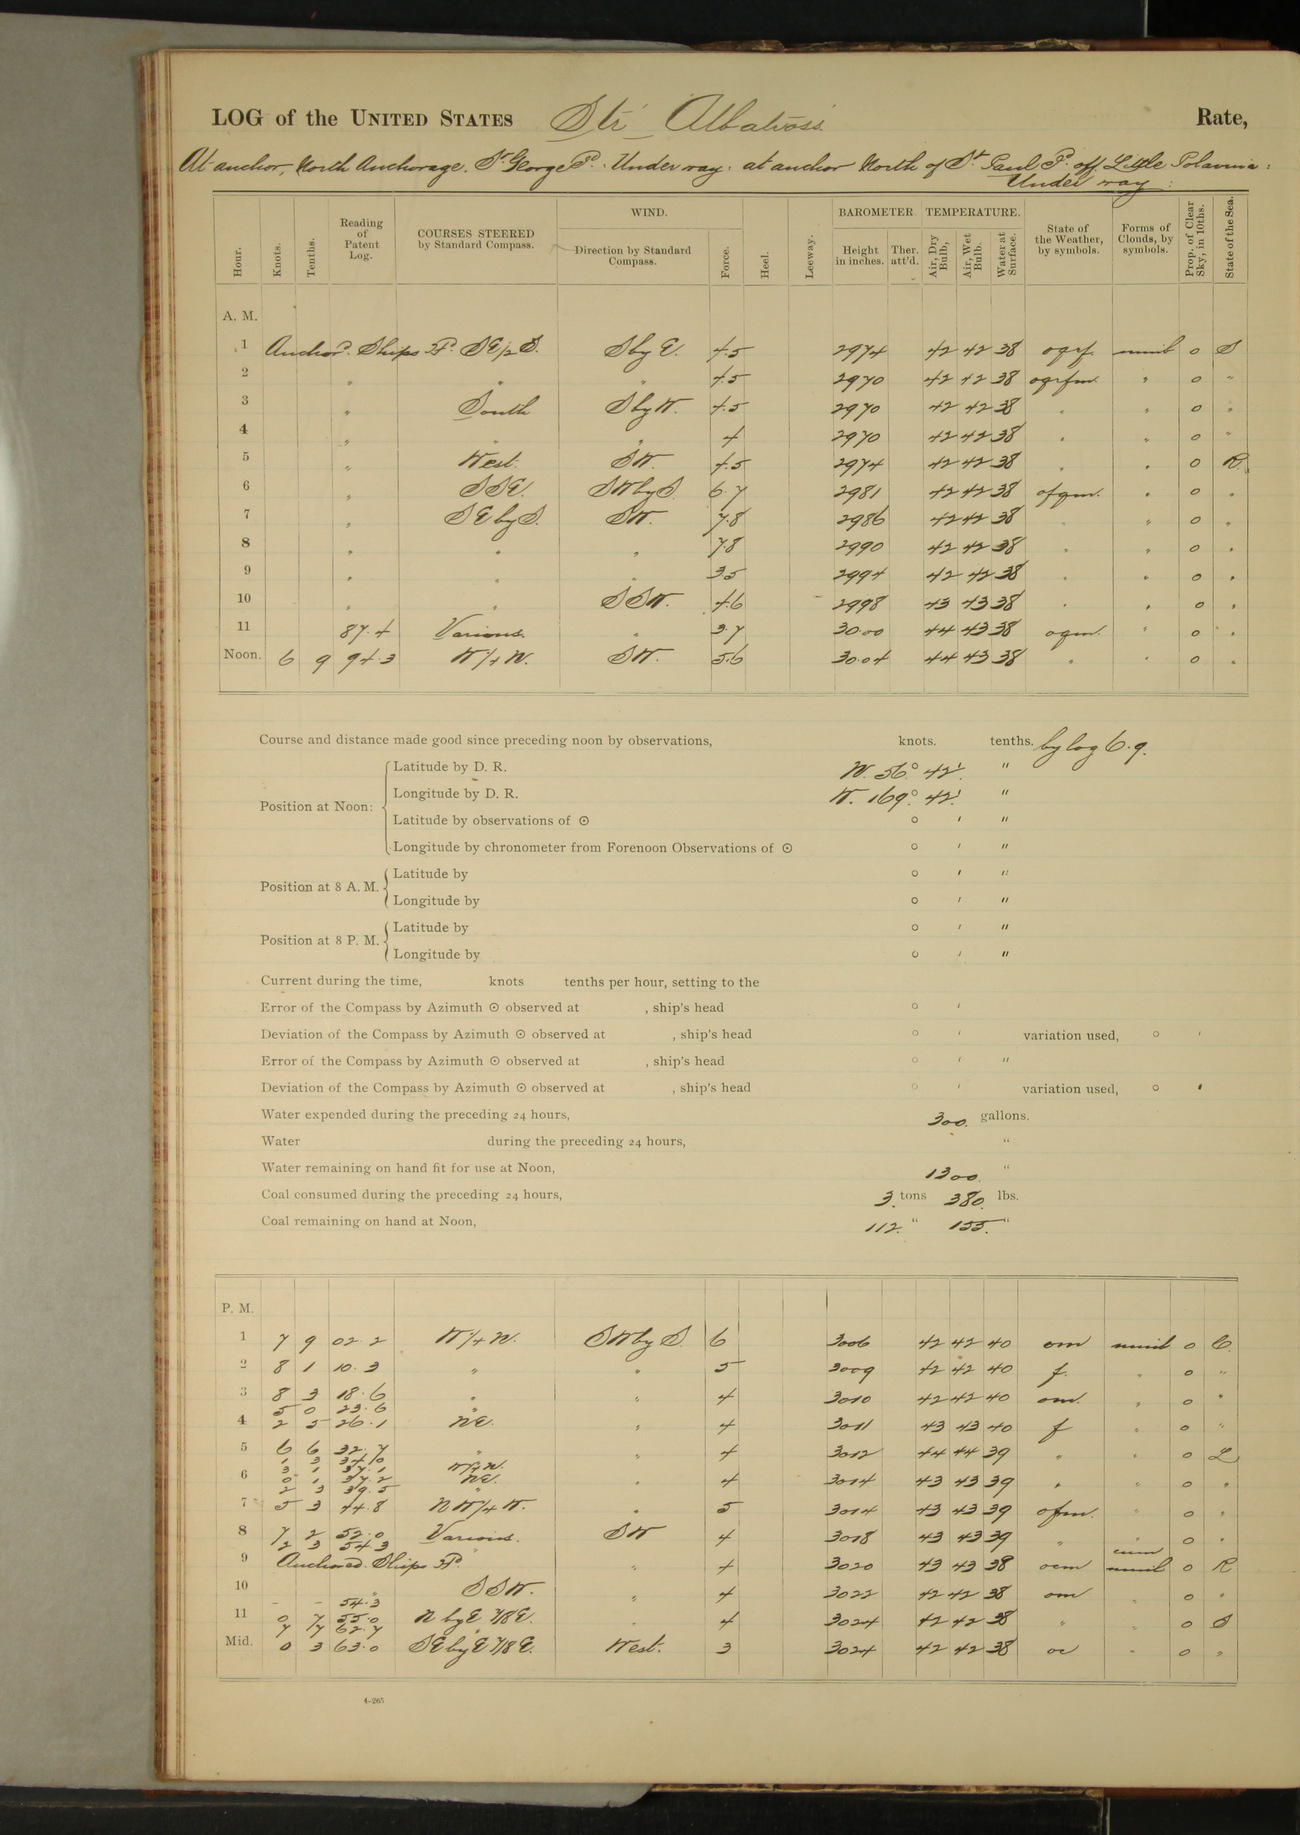 LOG of the UNITED STATES Str Albatross Rate,
At anchor, North Anchorage, St George Id. Under way: at anchor North of St Paul Id. off Little Polavina:
Under way:
Hour. Knots. Tenths. Reading of Patent Log. COURSES STEERED by Standard Compass. WIND. Direction by Standard Compass. Force. Heel. Leeway. BAROMETER. Height in inches. Ther. att'd. TEMPERATURE. Air, Dry Bulb, Air, Wet Bulb. Water at Surface. State of the Weather, by symbols. Forms of Clouds, by symbols. Prop. of Clear Sky, in 10ths. State of the Sea.
A. M.
1 Anchor'd. Ships Hd. SE 1/2 S. S by E. 4.5 2974 42 42 38 oqrf nimb 0 S
2 " " " 4.5 2970 42 42 38 oqrfm. " 0 "
3 " South S by W. 4.5 2970 42 42 38 " " 0 "
4 " " " 4 2970 42 42 38 " " 0 "
5 " West. SW. 4.5 2974 42 42 38 " " 0 R.
6 " SSE. SW by S. 6.7 2981 42 42 38 ofqm. " 0 "
7 " SE by S. SW. 7.8 2986 42 42 38 " " 0 "
8 " " " 7.8 2990 42 42 38 " " 0 "
9 " " " 3.5 2994 42 42 38 " " 0 "
10 " " SSW. 4.6 2998 43 43 38 " " 0 "
11 87.4 Various. " 3.7 30.00 44 43 38 oqm. " 0 "
Noon. 6 9 94.3 W 1/4 N. SW. 5.6 30.04 44 43 38 " " 0 "
Course and distance made good since preceding noon by observations, knots. tenths. by log 6.9.
Position at Noon: Latitude by D. R. N. 56° 42' "
Longitude by D. R. W. 169° 42' "
Latitude by observations of ☉ ° ' "
Longitude by chronometer from Forenoon Observations of ☉ ° ' "
Position at 8 A. M. Latitude by ° ' "
Longitude by ° ' "
Position at 8 P. M. Latitude by ° ' "
Longitude by ° ' "
Current during the time, knots tenths per hour, setting to the
Error of the Compass by Azimuth ☉ observed at , ship's head ° '
Deviation of the Compass by Azimuth ☉ observed at , ship's head ° ' variation used, ° '
Error of the Compass by Azimuth ☉ observed at , ship's head ° ' "
Deviation of the Compass by Azimuth ☉ observed at , ship's head ° ' variation used, ° '
Water expended during the preceding 24 hours, 300. gallons.
Water during the preceding 24 hours, "
Water remaining on hand fit for use at Noon, 1300. "
Coal consumed during the preceding 24 hours, 3. tons 380. lbs.
Coal remaining on hand at Noon, 112. " 155. "
P. M.
1 7 9 02.2 W 1/4 N. SW by S. 6 3006 42 42 40 om nimb 0 C.
2 8 1 10.3 " " 5 3009 42 42 40 f. " 0 "
3 8 3 18.6 " " 4 3010 42 42 40 om. " 0 "
5 0 23.6 "
4 2 5 26.1 NE. " 4 3011 43 43 40 f " 0 "
5 6 6 32.7 " " 4 3012 44 44 39 " " 0 L
1 3 34.0
3 1 37.1 W 1/4 N.
6 0 1 37.2 NE. " 4 3014 43 43 39 " " 0 "
2 3 39.5 "
7 5 3 44.8 NW 1/4 W. " 5 3014 43 43 39 ofm. " 0 "
8 7 2 52.0 Various. SW 4 3018 43 43 39 " " 0 "
2 3 54.3 "
9 Anchored. Ships Hd. " 4 3020 43 43 38 ocm cum nimb 0 R
10 " SSW. " 4 3022 42 42 38 om " 0 "
- - 54.3
11 0 7 55.0 N by E 7/8 E. " 4 3024 42 42 38 " " 0 S
7 7 62.7 "
Mid. 0 3 63.0 SE by E 7/8 E. West. 3 3024 42 42 38 oc " 0 "
4-265